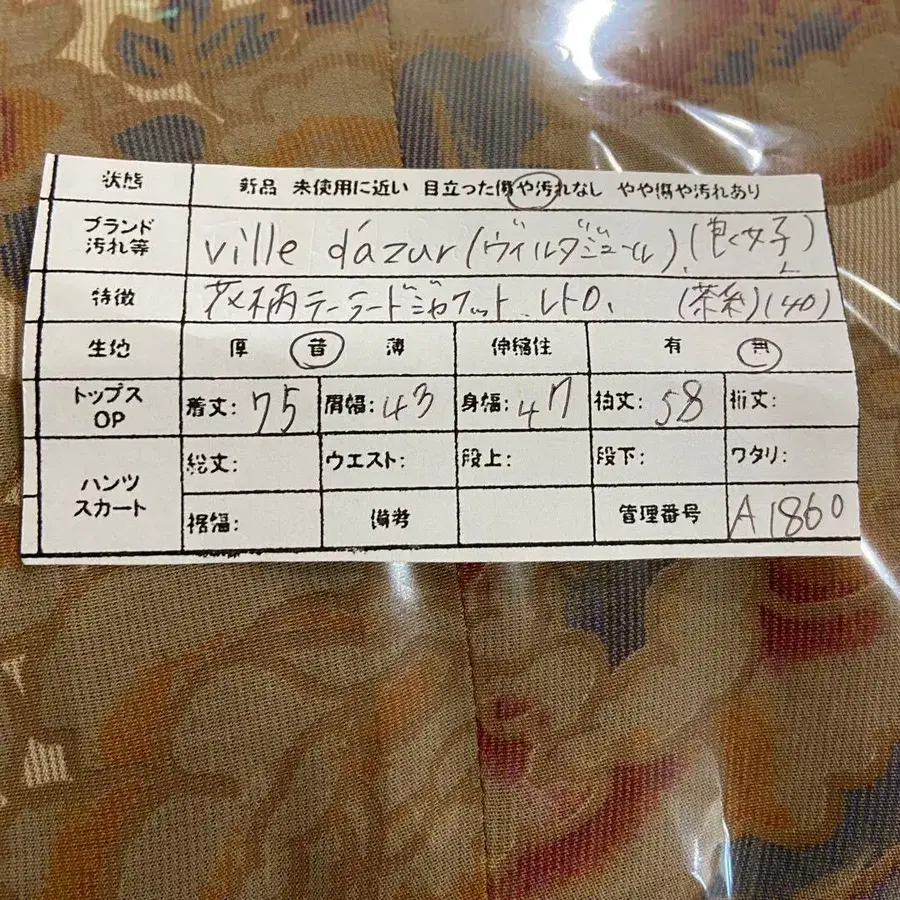 状態 新品 未使用に近い 目立った傷や汚れなし やや傷や汚れあり
ブランド
汚れ等
ville d'azur(ヴィルダジュール)、(良く女子)
特徴 花柄テーラードジャケット、レトロ、 (茶系)(40)
生地 厚 普 薄 伸縮性 有 無
トップス
OP
着丈:75 肩幅:43 身幅:47 袖丈:58 裄丈:
パンツ
スカート
総丈: ウエスト: 股上: 股下: ワタリ:
裾幅: 備考 管理番号 A1860